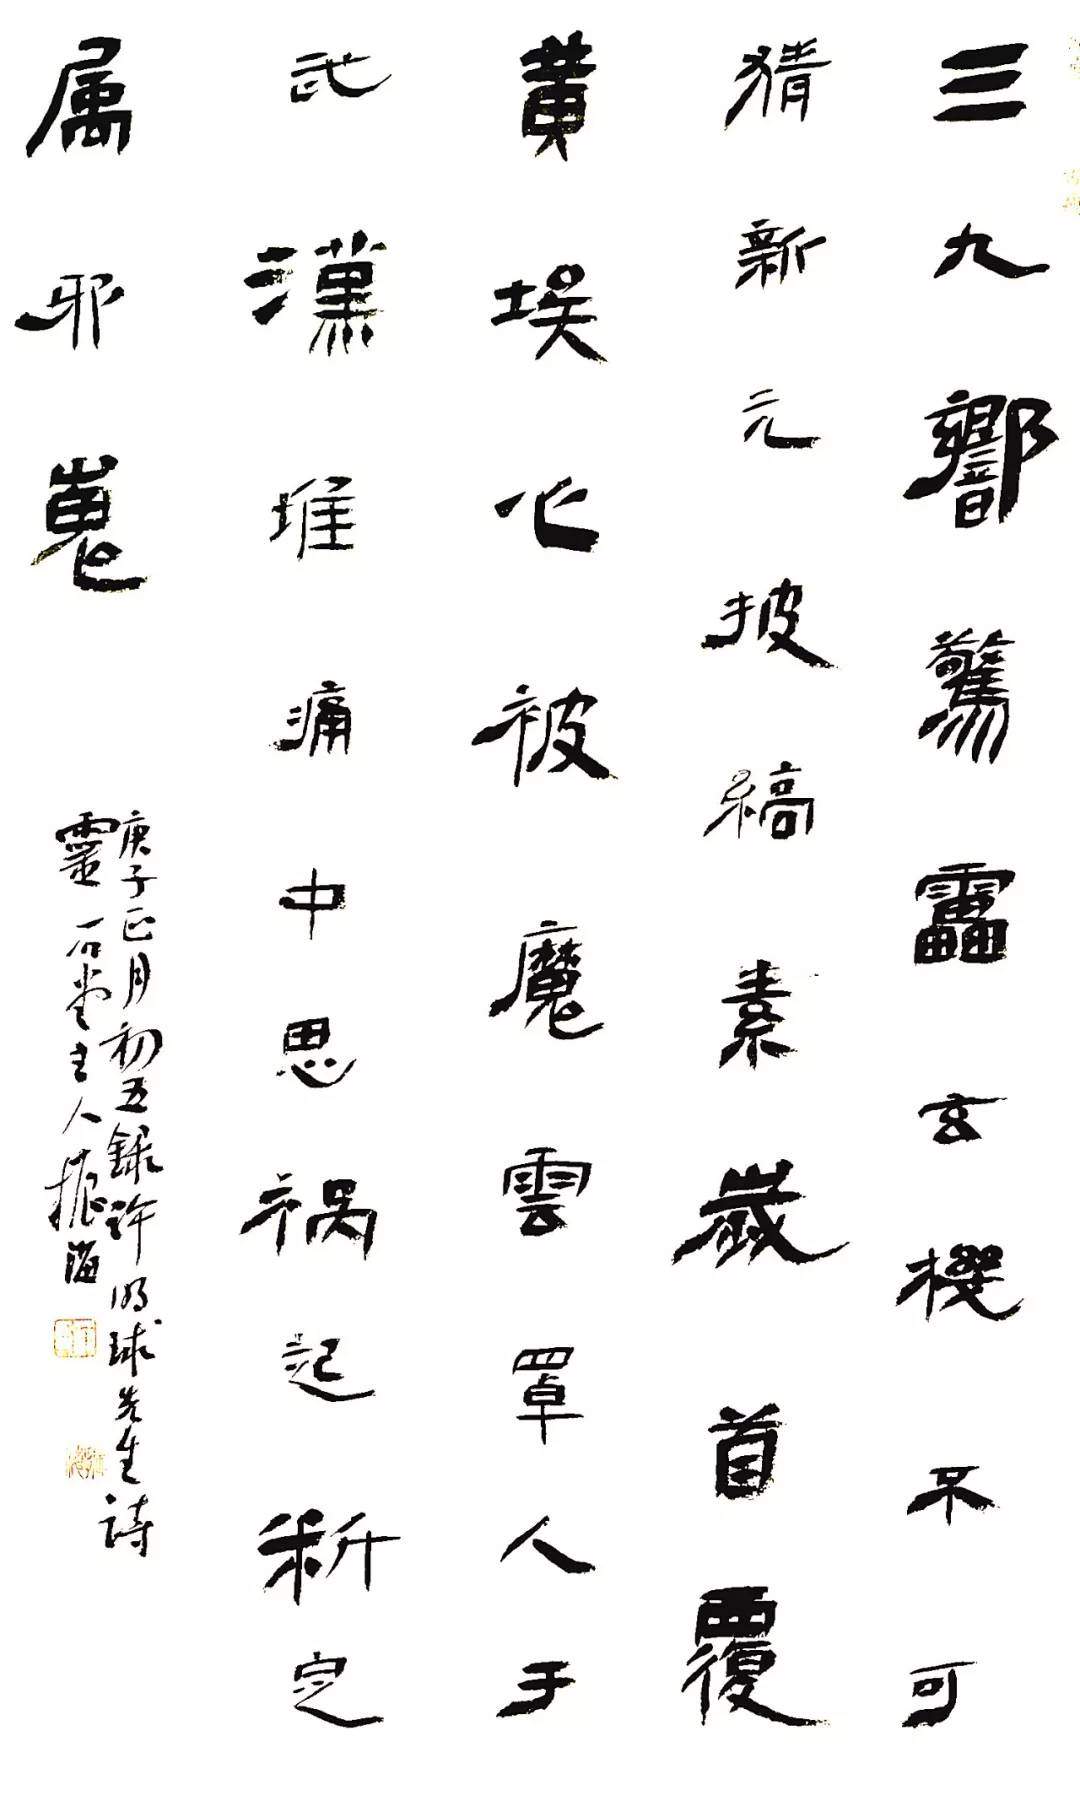 三九響驚靁玄機不可
猜新元披縞素歲首覆
黄埃化被魔雲罩人于
武漢堆痛中思祸起断定
属邪嵬
庚子正月初五録许明球先生詩
靈石堂主人振海